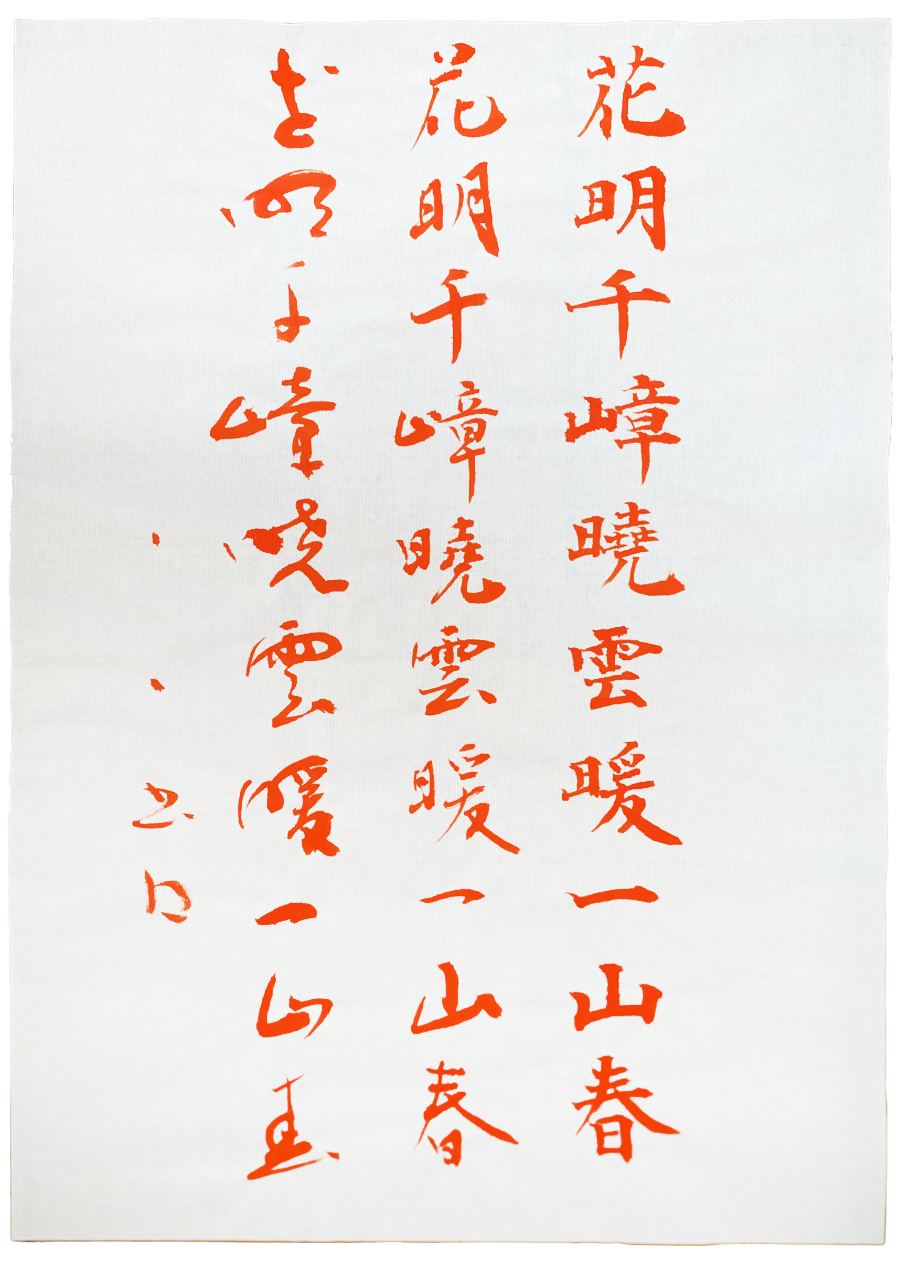 花明千嶂曉雲暖一山春
花明千嶂曉雲暖一山春
花明千嶂曉雲暖一山春